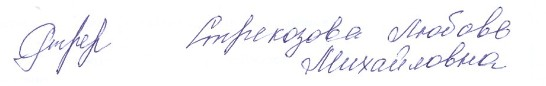 Стрекозова Любовь
Михайловна